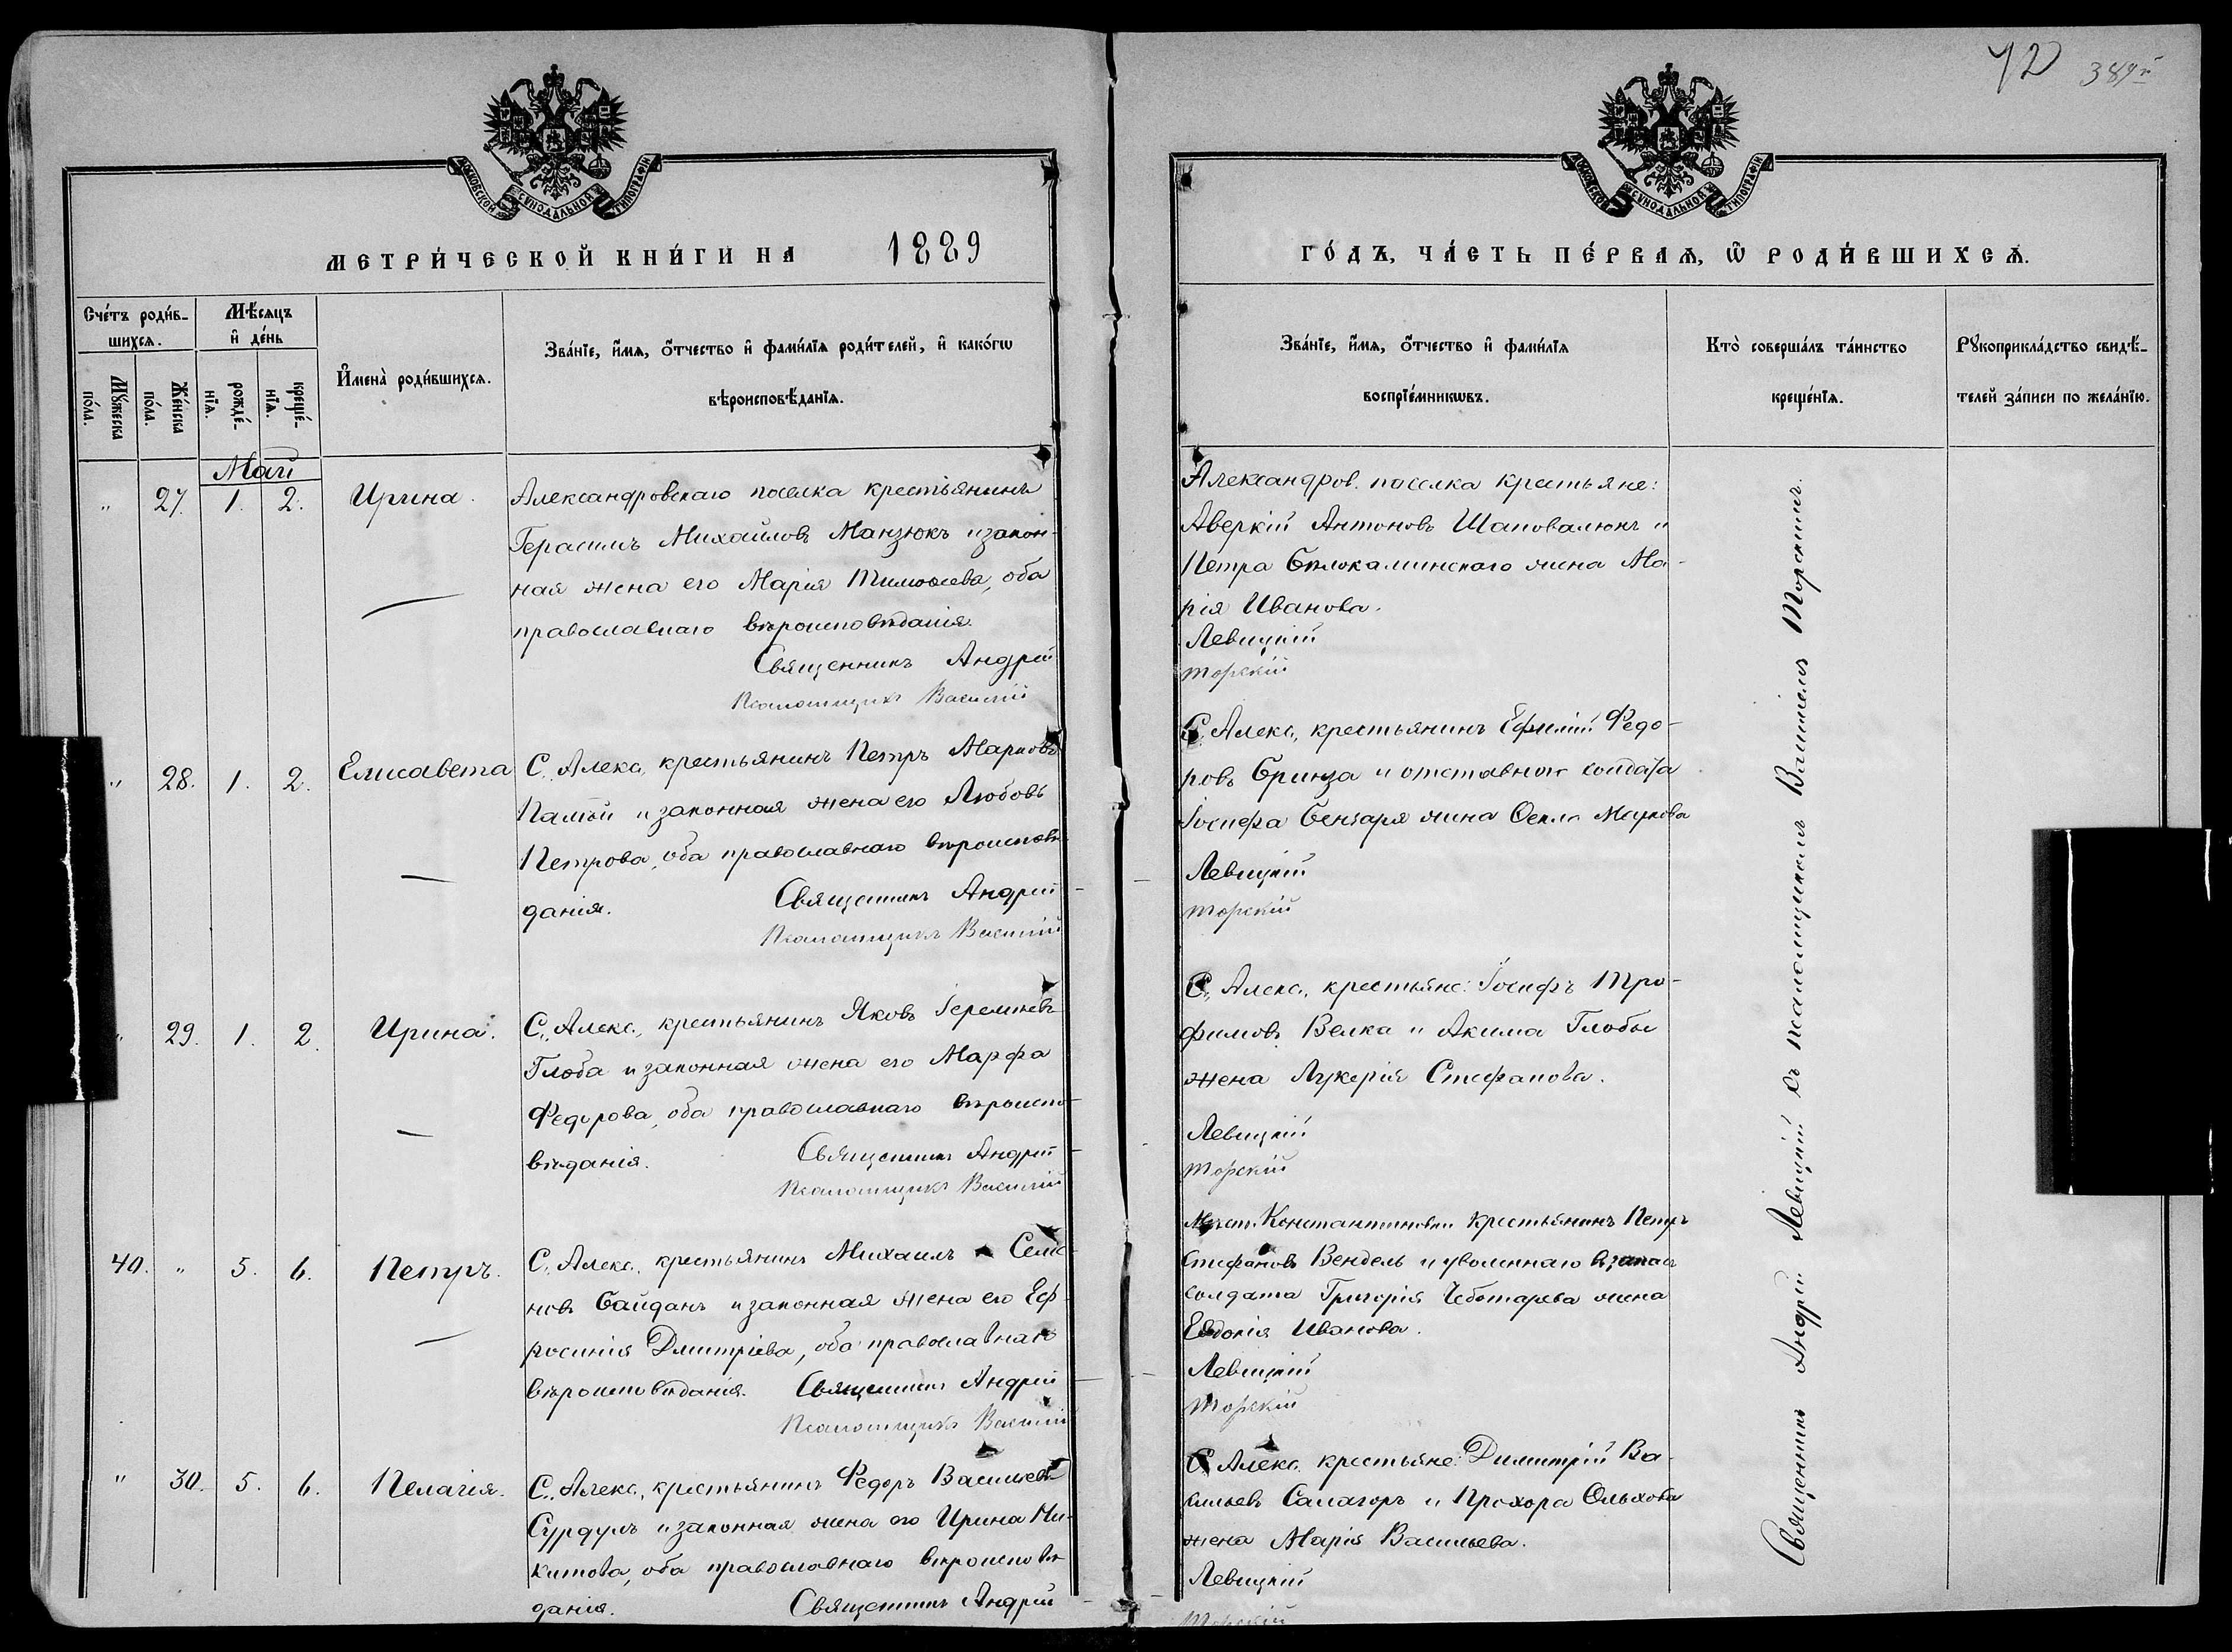 72 389
МОСКОВСКОЙ СѴНОДАЛЬНОЙ ТИПОГРАФІИ
МОСКОВСКОЙ СѴНОДАЛЬНОЙ ТИПОГРАФІИ
МЕТРИ́ЧЕСКОЙ КНИ́ГИ НА 1889
ГО́ДЪ, ЧА́СТЬ ПЕ́РВАѦ, Ѿ РОДИ́ВШИХСѦ.
Сче́тъ роди́в-
шихсѧ.
Мꙋ́жеска
по́ла.
Же́нска
по́ла.
Мѣ́сѧцъ
и҆ де́нь
рожде́-
нїѧ.
креще́-
нїѧ.
И҆мена̀ роди́вшихсѧ.
Зва́нїе, и҆́мѧ, ѻ҆́тчество и҆ фами́лїѧ роди́телей, и҆ како́гѡ
вѣроисповѣ́данїѧ.
Зва́нїе, и҆́мѧ, ѻ҆́тчество и҆ фами́лїѧ
воспрїе́мникѡвъ.
Кто̀ соверша́лъ та́инство
креще́нїѧ.
Рꙋкоприкла́дство свидѣ́-
телей за́писи по жела́нїю.
Май
" 27. 1. 2. Ирина.
Александровскаго поселка крестьянинъ
Герасимъ Михайловъ Манзюкъ и закон-
ная жена его Марія Тимоѳеева, оба
православнаго вѣроисповѣданія.
Священникъ Андрей
Псаломщикъ Василій
Александров. поселка крестьяне:
Аверкій Антоновъ Шаповалюкъ и
Петра Бѣлокаминскаго жена Ма-
рія Иванова.
Левицкій
Торскій
" 28. 1. 2. Елисавета
С. Алекс. крестьянинъ Петръ Марковъ
Палій и законная жена его Любовь
Петрова, оба православнаго вѣроисповѣ-
данія.
Священникъ Андрей
Псаломщикъ Василій
С. Алекс. крестьянинъ Ефимій Федо-
ровъ Бринза и отставного солдата
Іосифа жена Маркова
Левицкій
Торскій
" 29. 1. 2. Ирина.
С. Алекс. крестьянинъ Яковъ Іереміевъ
Глоба и законная жена его Марфа
Федорова, оба православнаго вѣроиспо-
вѣданія.
Священникъ Андрей
Псаломщикъ Василій
С. Алекс. крестьяне: Іосифъ Тро-
фимовъ Велка и Акима Глобы
жена Лукерія Стефанова.
Левицкій
Торскій
40. " 5. 6. Петръ.
С. Алекс. крестьянинъ Михаилъ Семе-
новъ Байданъ и законная жена его Еф-
росинія Дмитріева, оба православнаго
вѣроисповѣданія. Священникъ Андрей
Псаломщикъ Василій
Константиновки крестьянинъ Петръ
Стефановъ Вендель и уволеннаго в запасъ
солдата Григорія Чеботарева жена
Евдокія Иванова.
Левицкій
Торскій
" 30. 5. 6. Пелагія.
С. Алекс. крестьянинъ Федоръ Васильевъ
Сурдулъ и законная жена его Ирина Ни-
китова, оба православнаго вѣроисповѣ-
данія.
Священникъ Андрей
С. Алекс. крестьяне: Димитрій Ва-
сильевъ Салагоръ и Прохора Ольхова
жена Марія Васильева.
Левицкій
Торскій
Священникъ Андрей Левицкій съ псаломщикомъ Василіемъ Торскимъ.